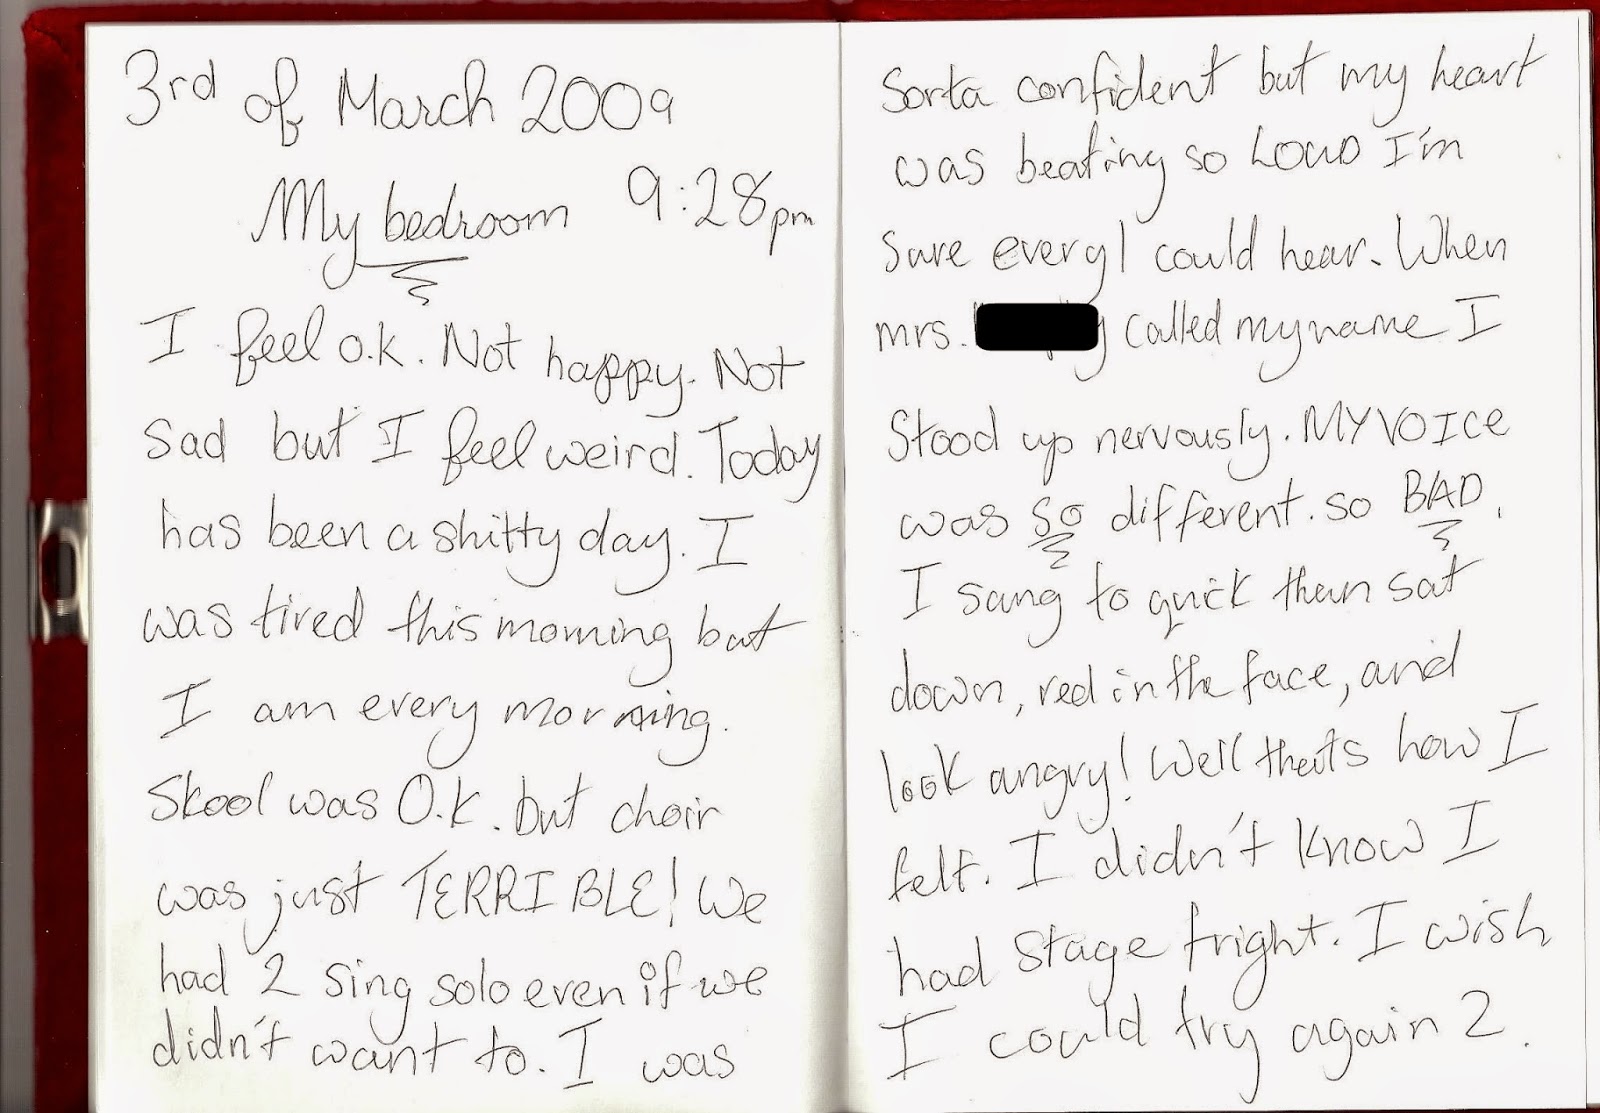 3rd of March 2009
My bedroom 9:28pm
I feel o.k. Not happy. Not
sad but I feel weird. Today
has been a shitty day. I
was tired this morning but
I am every morning.
Skool was O.K. but choir
was just TERRIBLE! We
had 2 sing solo even if we
didn't want to. I was
Sorta confident but my heart
was beating so LOUD I'm
sure every1 could hear. When
mrs. y called my name I
Stood up nervously. MY VOICE
was so different. so BAD.
I sang to quick then sat
down, red in the face, and
look angry! Well that's how I
felt. I didn't know I
had stage fright. I wish
I could try again 2.